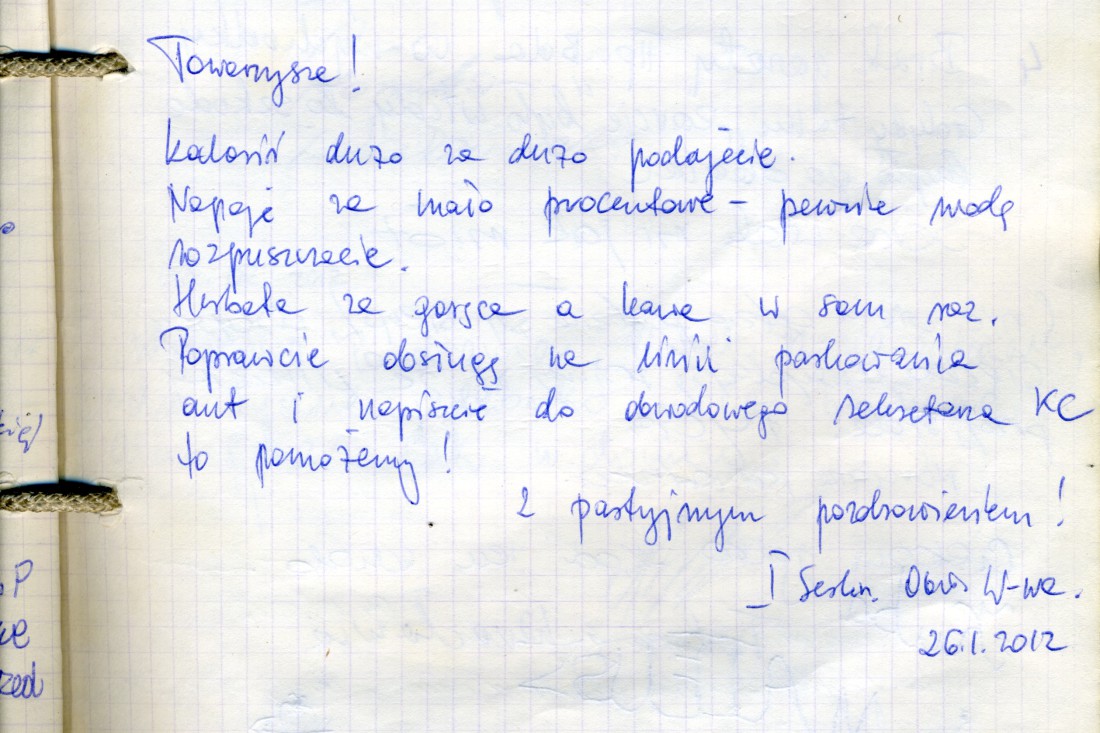 Towarzysze!
kalorii dużo za dużo podajecie.
Napoje za mało procentowe – pewnie wodą
rozpuszczacie.
Herbata za gorąca a kawa w sam raz.
Poprawcie obsługę na linii parkowania
aut i napiszcie do obwodowego sekretarza KC
to pomożemy!
Z partyjnym pozdrowieniem!
I Sekr. W-wa.
26.1.2012
P